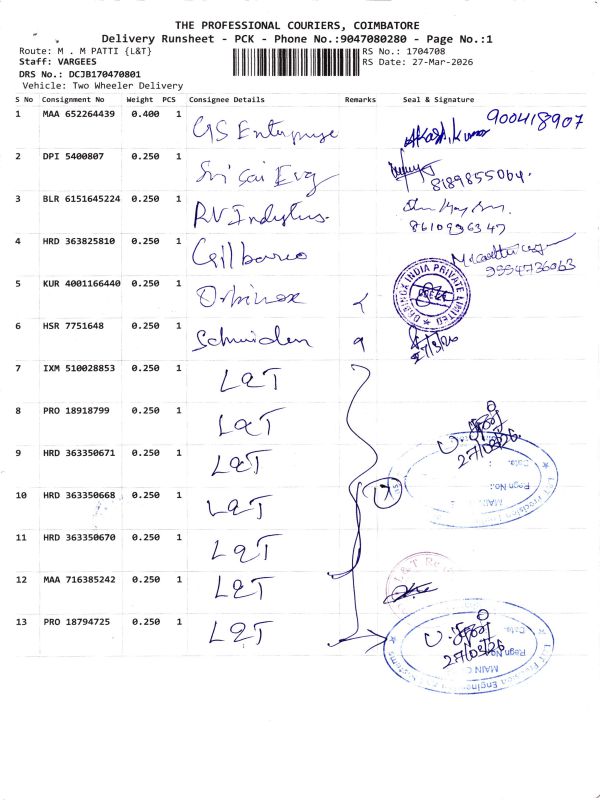 THE PROFESSIONAL COURIERS, COIMBATORE
Delivery Runsheet - PCK - Phone No.:9047080280 - Page No.:1
Route: M . M PATTI {L&T} RS No.: 1704708
Staff: VARGEES RS Date: 27-Mar-2026
DRS No.: DCJB170470801
Vehicle: Two Wheeler Delivery
S No Consignment No Weight PCS Consignee Details Remarks Seal & Signature
1 MAA 652264439 0.400 1 GS Enterprise 900418907
2 DPI 5400807 0.250 1 Sri Sai Eng 8189855064.
3 BLR 6151645224 0.250 1 RV Industries. 8610996347
4 HRD 363825810 0.250 1 Cellbarco 9994736063
5 KUR 4001166440 0.250 1 Orbinox
INDIA PRIVATE LIMITED
6 HSR 7751648 0.250 1 Schneider 27/3/26
7 IXM 510028853 0.250 1 L&T
8 PRO 18918799 0.250 1 L&T
27/03/26.
9 HRD 363350671 0.250 1 L&T
Date.
Regn No.:
MAIN
L&T Precision
10 HRD 363350668 0.250 1 L&T
11 HRD 363350670 0.250 1 L&T
12 MAA 716385242 0.250 1 L&T
L&T
13 PRO 18794725 0.250 1 L&T
27/03/26
Date.
Regn No.
MAIN
L&T Precision Engineering and Systems